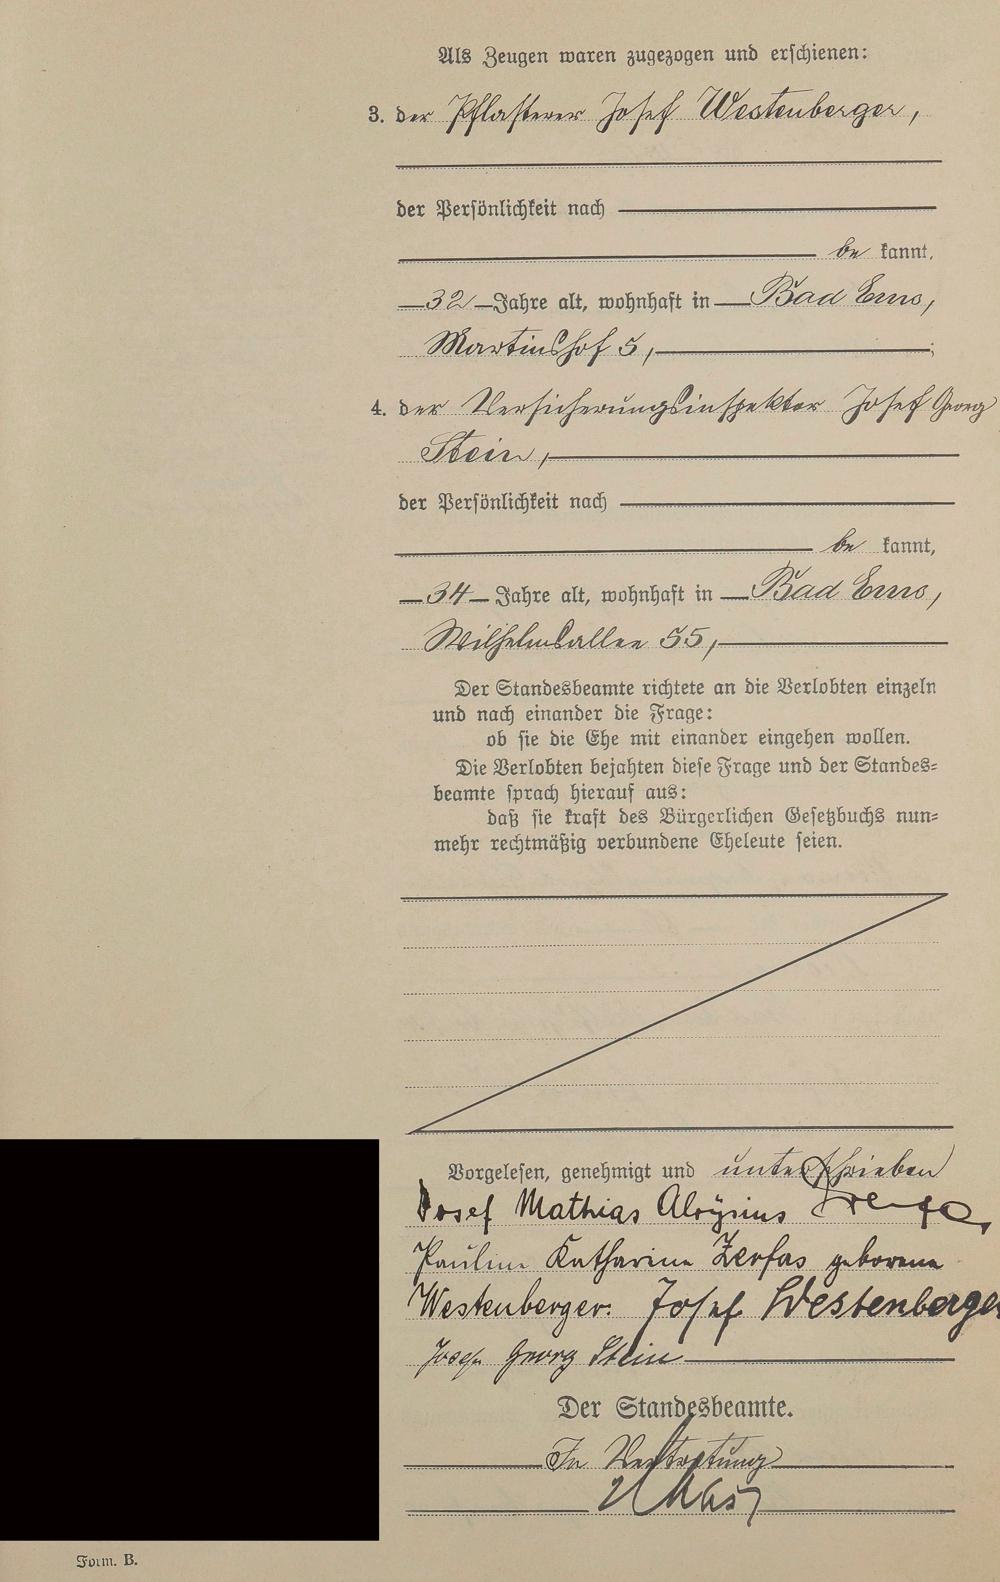 Als Zeugen waren zugezogen und erschienen:
3. der Pflasterer Josef Westenberger,
der Persönlichkeit nach
be kannt,
32 Jahre alt, wohnhaft in Bad Ems,
Martinshof 5, ;
4. der Versicherungsinspektor Josef Georg
Stein,
der Persönlichkeit nach
be kannt,
34 Jahre alt, wohnhaft in Bad Ems,
Wilhelmsallee 55,
Der Standesbeamte richtete an die Verlobten einzeln
und nach einander die Frage:
ob sie die Ehe mit einander eingehen wollen.
Die Verlobten bejahten diese Frage und der Standes=
beamte sprach hierauf aus:
daß sie kraft des Bürgerlichen Gesetzbuchs nun=
mehr rechtmäßig verbundene Eheleute seien.
Vorgelesen, genehmigt und unterschrieben
Josef Mathias Aloysius Zerfas,
Pauline Katharina Zerfas geborene
Westenberger. Josef Westenberger
Josef Georg Stein
Der Standesbeamte.
In Vertretung
Form. B.